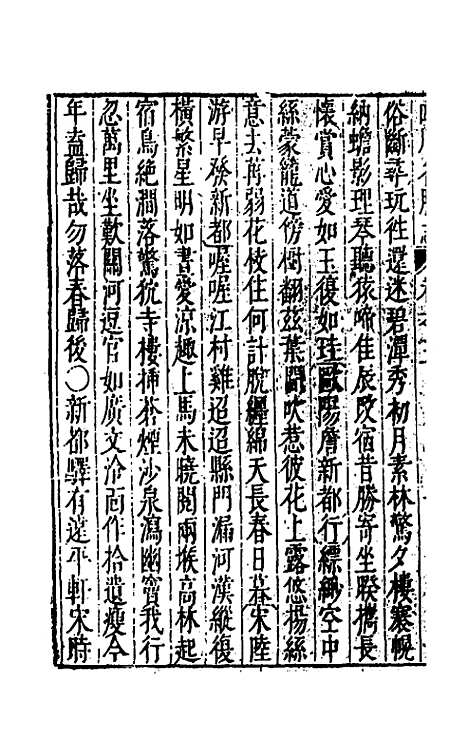 俗斷尋玩往還迷碧潭秀初月素林驚夕棲褰幌
納蟾影理琴聽猿啼佳辰改宿昔勝寄坐睽攜長
懷賞心愛如玉復如珪歐陽膺新都行縹緲空中
絲蒙籠道傍樹翻茲葉間吹惹彼花上露悠揚絲
意去苒弱花枝住何計脫纏綿天長春日暮宋陸
游早發新都喔喔江村雞迢迢縣門漏河漢縱復
橫繁星明如晝愛涼趣上馬未曉閱兩堠高林起
宿鳥絕澗落驚狖寺樓插蒼煙沙泉瀉幽竇我行
忽萬里坐歎關河逗官如廣文冷面作拾遺瘦今
年盍歸哉勿落春歸後〇新都驛有遠平軒宋時